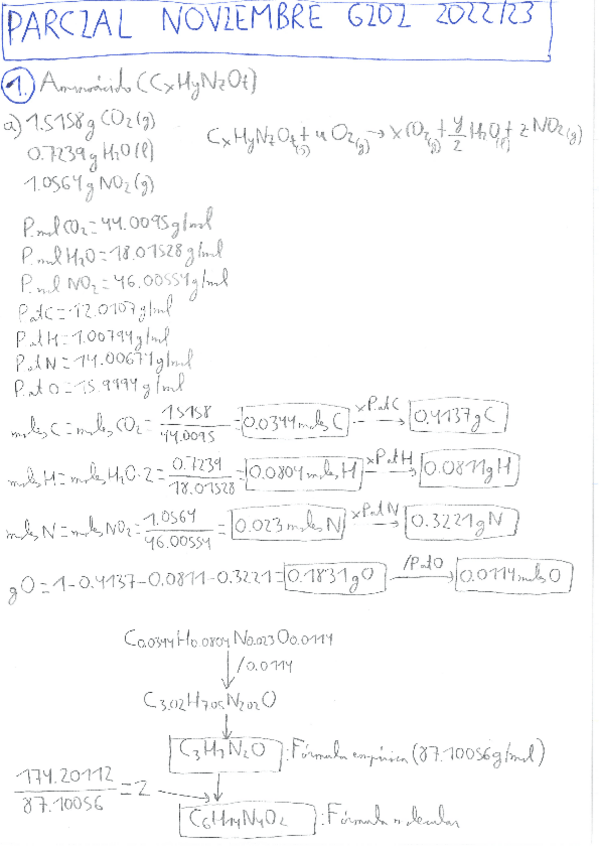 PARCIAL NOVIEMBRE G202 2022/23
1. Aminoácido (CxHyNzOt)
a) 1.5158g CO2(g)
0.7239g H2O(l)
1.0564g NO2(g)
CxHyNzOt(s) + u O2(g) → xCO2(g) + y/2 H2O(l) + z NO2(g)
P.mol CO2 = 44.0095 g/mol
P.mol H2O = 18.01528 g/mol
P.mol NO2 = 46.00554 g/mol
P.at C = 12.0107 g/mol
P.at H = 1.00794 g/mol
P.at N = 14.00674 g/mol
P.at O = 15.9994 g/mol
moles C = moles CO2 = 1.5158/44.0095 = 0.0344 moles C xP.at C → 0.4137g C
moles H = moles H2O·2 = 0.7239/18.01528 = 0.0804 moles H xP.at H → 0.0811g H
moles N = moles NO2 = 1.0564/46.00554 = 0.023 moles N xP.at N → 0.3221g N
gO = 1-0.4137-0.0811-0.3221 = 0.1831g O /P.at O → 0.0114 moles O
C0.0344H0.0804N0.023O0.0114
/0.0114
C3.02H7.05N2.02O
C3H7N2O : Fórmula empírica (87.10056 g/mol)
174.20112/87.10056 = 2
C6H14N4O2 : Fórmula molecular